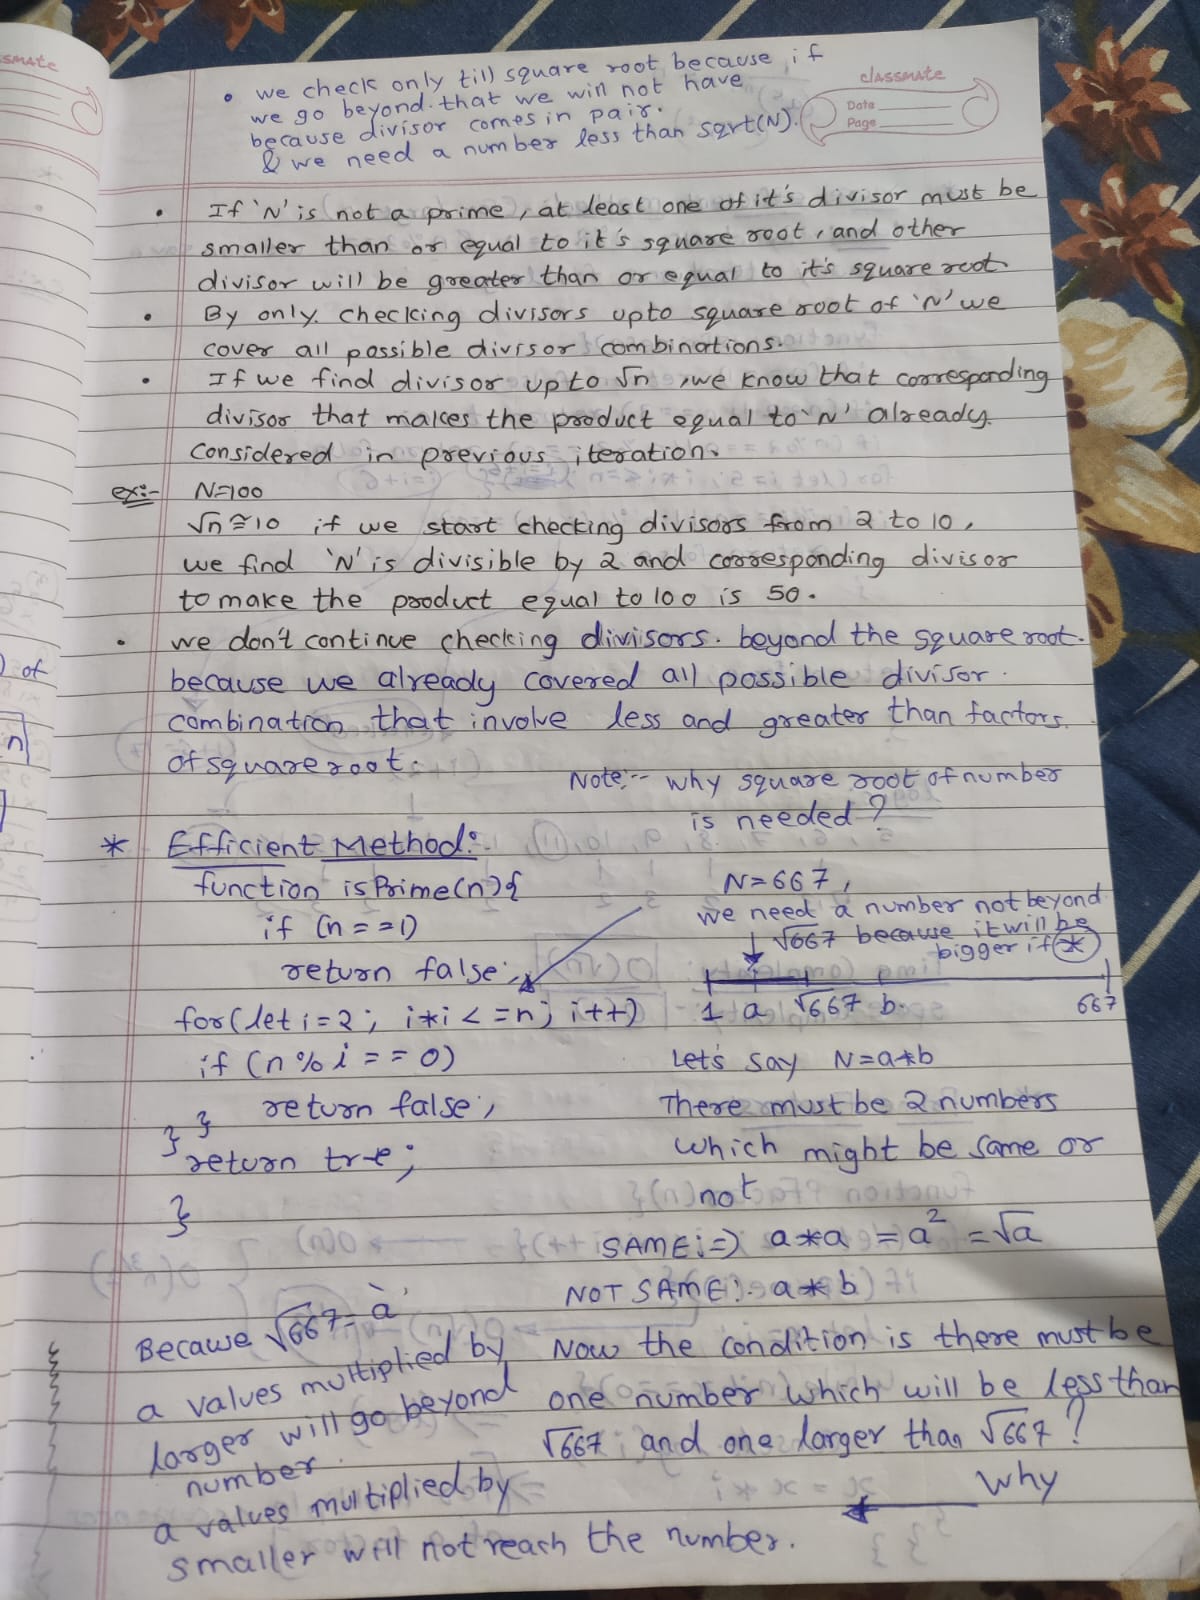 ssmate
classmate
Date
Page
• we check only till square root because if
we go beyond that we will not have
because divisor comes in pair.
& we need a number less than sqrt(N).
• If 'N' is not a prime, at least one of it's divisor must be
smaller than or equal to it's square root, and other
divisor will be greater than or equal to it's square root.
• By only checking divisors upto square root of 'N' we
cover all possible divisor combinations.
• If we find divisor up to √n, we know that corresponding
divisor that makes the product equal to 'N' already
considered in previous iteration.
ex:- N=100
√n ≅ 10 if we start checking divisors from 2 to 10,
we find 'N' is divisible by 2 and corresponding divisor
to make the product equal to 100 is 50.
• we don't continue checking divisors. beyond the square root.
because we already covered all possible divisor
combination that involve less and greater than factors
of square root.
Note:- why square root of number
is needed?
* Efficient Method:-
function isPrime(n){
if (n==1)
return false;
for(let i=2; i*i<=n; i++)
if (n%i==0)
return false;
} }
return true;
}
N=667,
we need a number not beyond
√667 because it will be
bigger if *
1 a √667 b 667
Let's say N=a*b
There must be 2 numbers
which might be same or
not
SAME:=) a*a = a² = √a
NOT SAME:- a*b
Now the condition is there must be
one number which will be less than
√667, and one larger than √667?
why
Because √667 = 'a'
a values multiplied by
larger will go beyond
number.
a values multiplied by
smaller will not reach the number.
) of
n